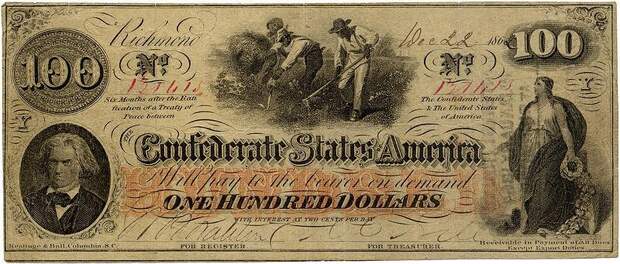 Richmond
Dec 22 186
100
100
No.
No.
Six Months after the Rati
fication of a Treaty of
Peace between
The Confederate States
& The United States
of America.
Y
Y
THE
Confederate States of America
Will pay to the bearer on demand
ONE HUNDRED DOLLARS
WITH INTEREST AT TWO CENTS PER DAY
FOR REGISTER.
FOR TREASURER.
Keatinge & Ball, Columbia, S.C.
Receivable in Payment of all Dues
Except Export Duties.